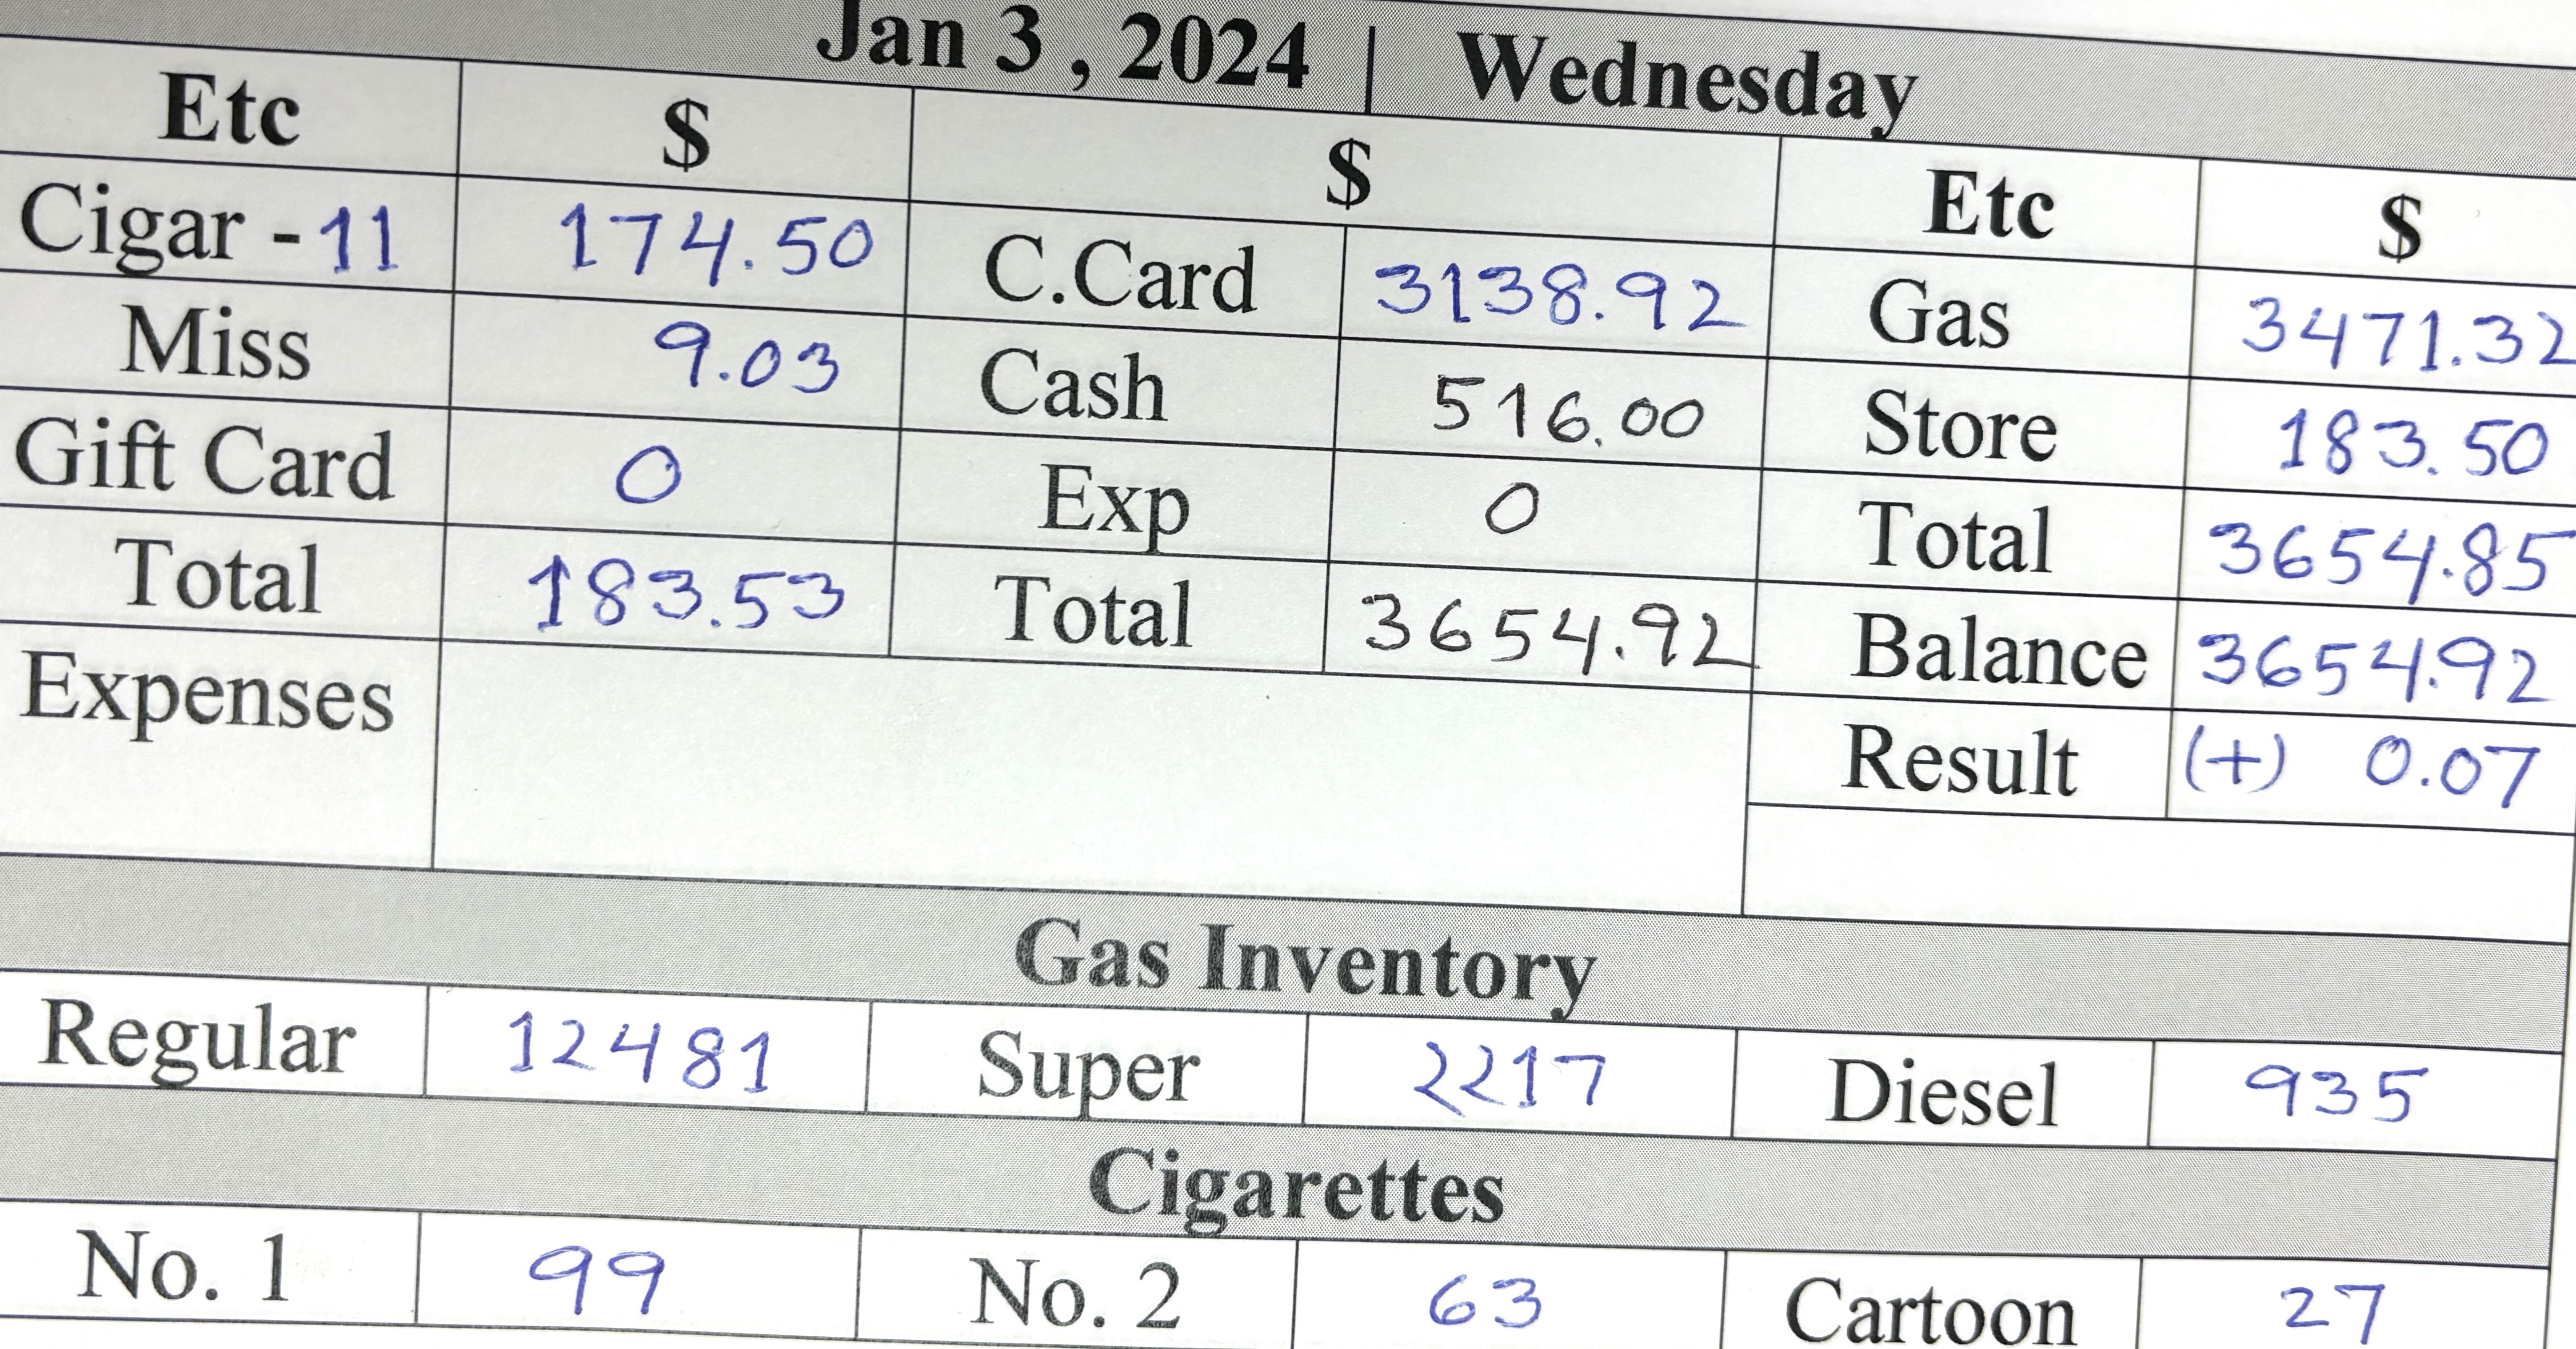 Jan 3 , 2024 | Wednesday
Etc $ $ Etc $
Cigar - 11 174.50 C.Card 3138.92 Gas 3471.32
Miss 9.03 Cash 516.00 Store 183.50
Gift Card 0 Exp 0 Total 3654.85
Total 183.53 Total 3654.92 Balance 3654.92
Expenses Result (+) 0.07
Gas Inventory
Regular 12481 Super 2217 Diesel 935
Cigarettes
No. 1 99 No. 2 63 Cartoon 27